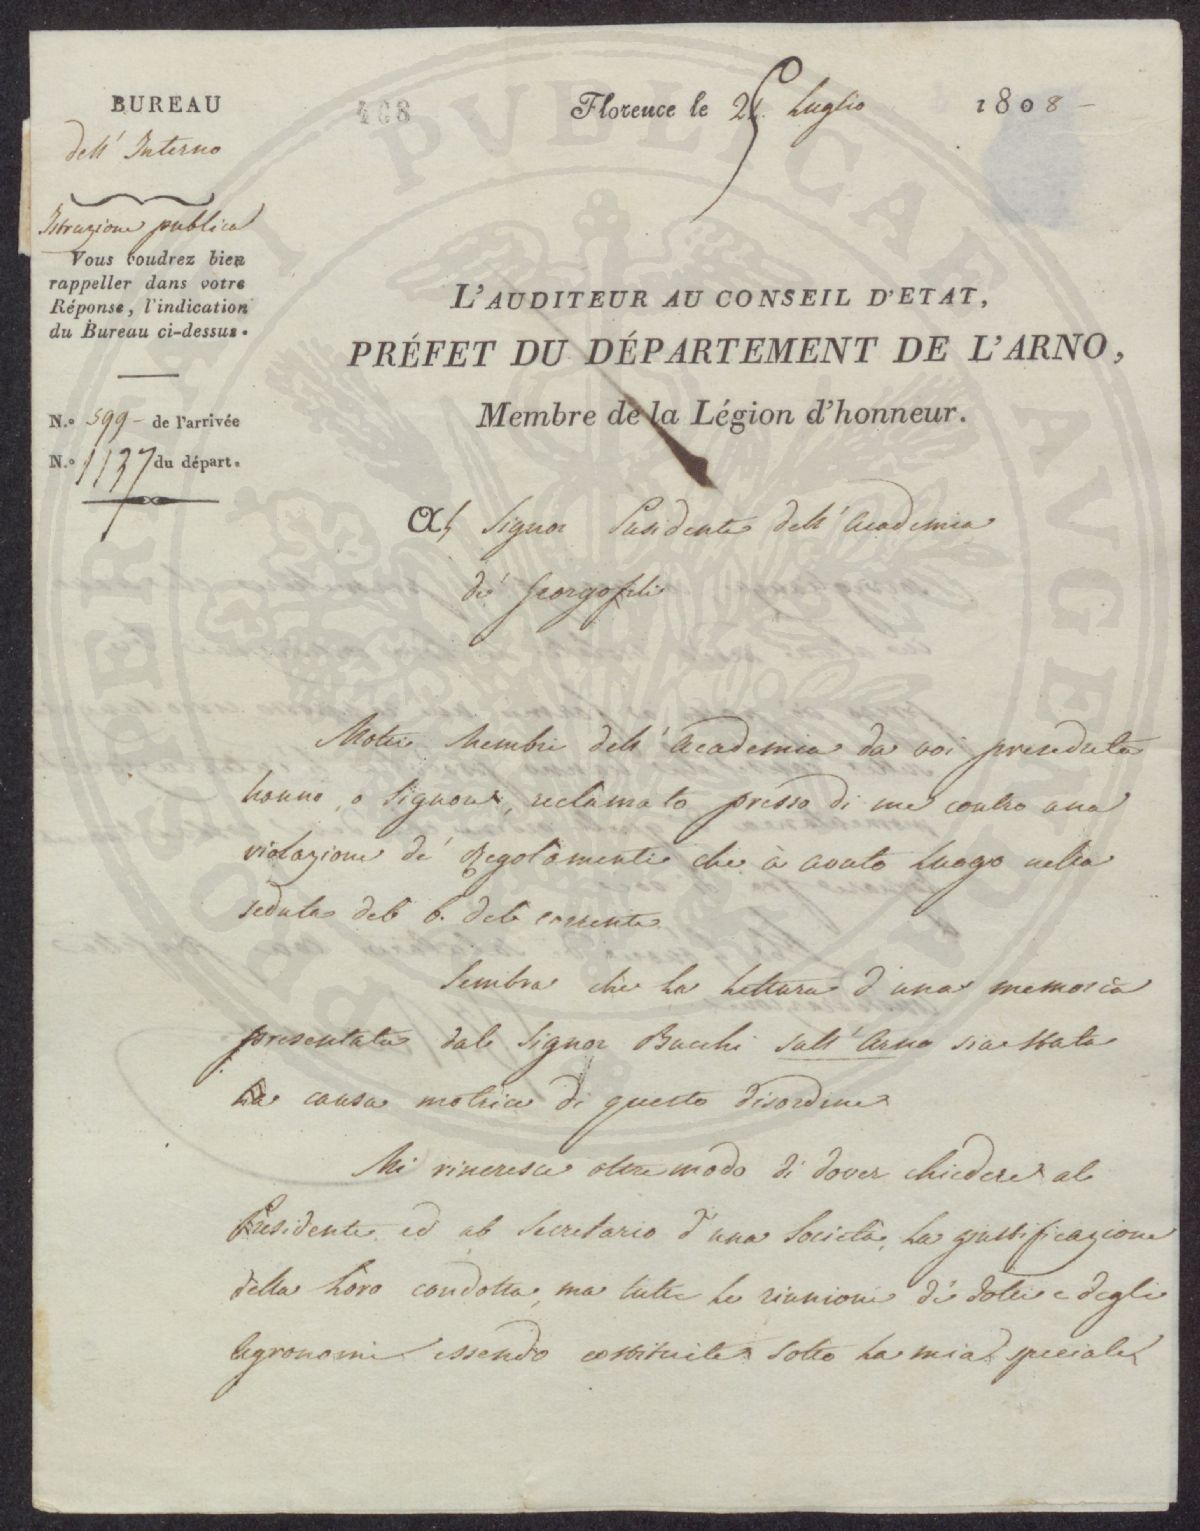 BUREAU
dell' Interno
Istruzione publica
Vous voudrez bien
rappeller dans votre
Réponse, l'indication
du Bureau ci-dessus.
N.º 599 - de l'arrivée
N.º 1137 du départ.
468
Florence le Luglio 1808 -
L'AUDITEUR AU CONSEIL D'ETAT,
PRÉFET DU DÉPARTEMENT DE L'ARNO,
Membre de la Légion d'honneur.
Al Signor Presidente dell' Academia
de' Georgofili
Molti Membri dell' Academia da voi preseduta
hanno, o Signore, reclamato presso di me contro una
violazione de' Regolamenti che à avuto luogo nella
seduta del 6. del corrente
Sembra che la lettura d'una memoria
presentata dal Signor Bacchi sull' Arno sia stata
la causa motrice di questo disordine
Mi rincresce oltremodo di dover chiedere al
Presidente ed al Secretario d'una Società, la giustificazione
della loro condotta, ma tutte le riunioni de' dotti e degli
Agronomi essendo costituite sotto la mia speciale
PROSPERITATI PVBLICAE AVGENDAE